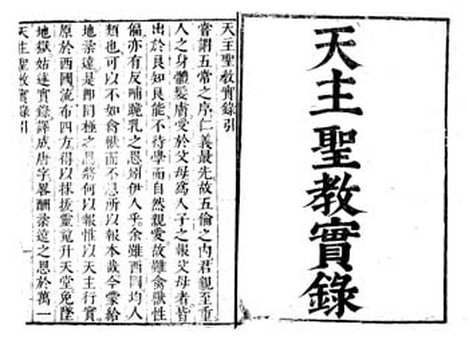 天主聖教實錄
天主聖教實錄引
嘗謂五常之序仁義最先故五倫之內君親至重
人之身體髮膚受於父母爲人子之報父母者皆
出於良知良能不待學而自然親愛故雖禽獸性
偏亦有反哺跪乳之恩矧伊人乎余雖西國均人
類也可以不如禽獸而不思所以報本哉今蒙給
地柔遠是即罔極之恩將何以報惟以天主行實
原於西國流布四方得以捄拔靈魂升天堂免墜
地獄姑述實錄譯成唐字畧酬柔遠之恩於萬一
天主聖教實錄引